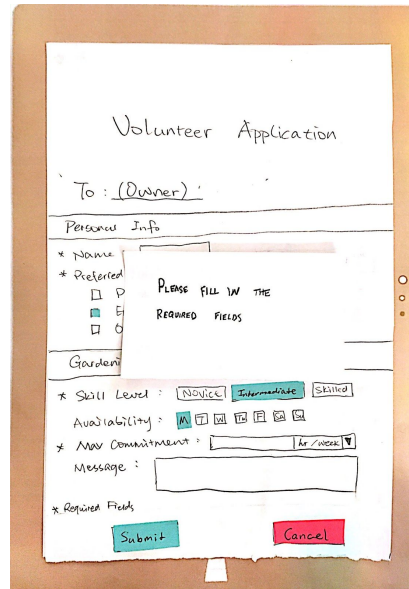 Volunteer Application
To : (Owner)
Personal Info
* Name
* Preferred
P
E
O
PLEASE FILL IN THE
REQUIRED FIELDS
Gardeni
* Skill Level : Novice Intermediate Skilled
Availability : M T W Th F Sa Su
* Max Commitment : hr / week
Message :
* Required Fields
Submit Cancel